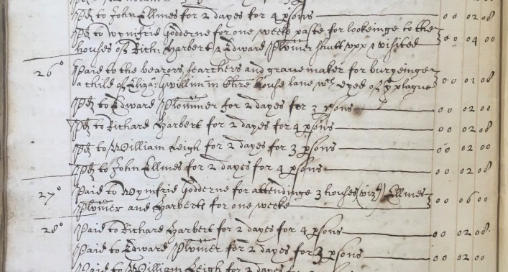 pd to John Ellmes for 2 dayes for 4 psons 00 02 08
pd to wynifrid Godderne for one weeks paste for lookeinge to the
houses of Rich: Harbert & Edward Plomer shutt upp & visited 00 04 00
26° Paid to the bearers, searchers and grave maker for buryeinge
a child of in the house lane wch dyed of ye plague 00 03 08
pd to Edward Plommer for 2 dayes for 3 psons 00 02 00
pd to Richard Harbert for 2 dayes for 4 psons 00 02 08
pd to William Leigh for 2 dayes for 3 psons 00 02 00
pd to John Ellmes for 2 dayes for 4 psons 00 02 08
27° Paid to Wynifrid Godderne for attendinge 3 houses (vizt) Ellmes
Plomer and Harberts for one weeke 00 06 00
28° Paid to Richard Harbert for 2 dayes for 4 psons 00 02 08
Paid to Edward Plomer for 2 dayes for 3 psons 00 02 00
Paid to William Leigh for 2 dayes for